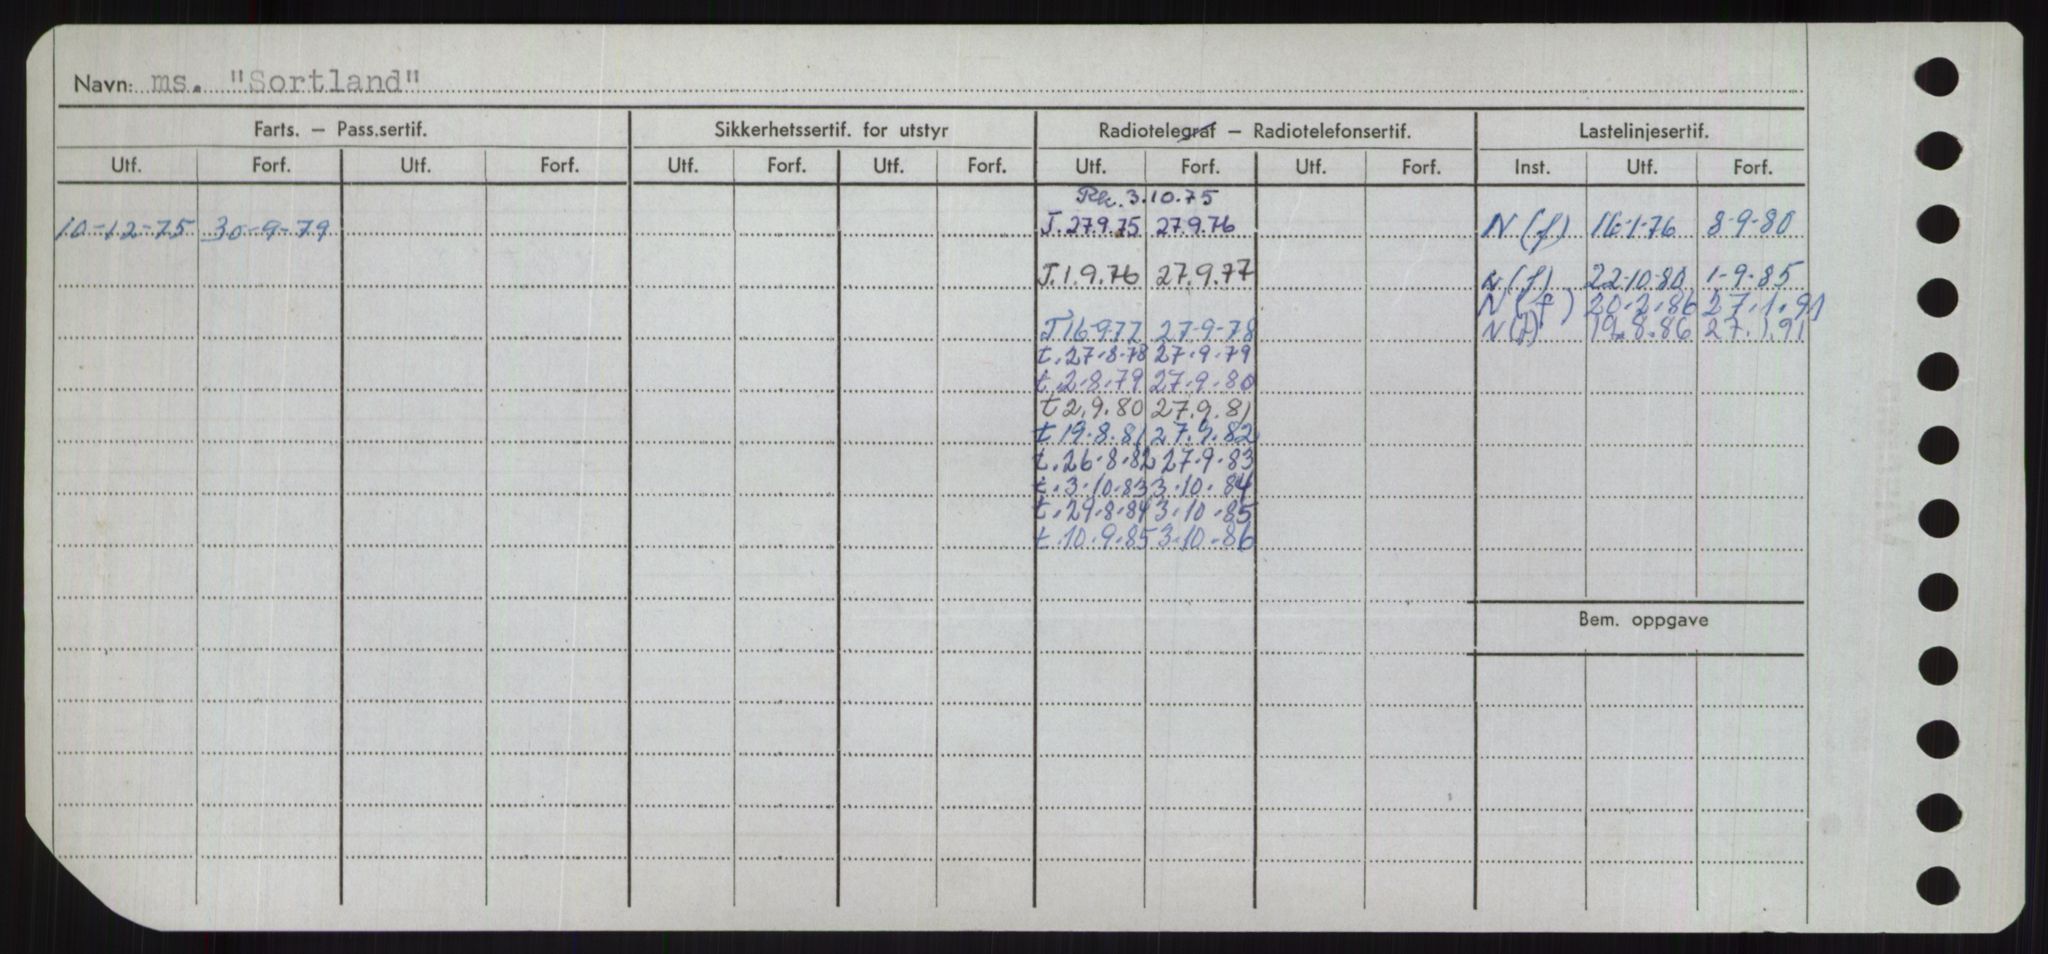 Navn: ms. "Sortland"
Farts. – Pass.sertif. Sikkerhetssertif. for utstyr Radiotelegraf – Radiotelefonsertif. Lastelinjesertif.
Utf. Forf. Utf. Forf. Utf. Forf. Utf. Forf. Utf. Forf. Utf. Forf. Inst. Utf. Forf.
Rk. 3.10.75
10-12-75 30-9-79 T. 27.9.75 27.9.76 N (f) 16-1-76 8-9-80
T. 1.9.76 27.9.77 N (f) 22-10-80 1-9-85
N (f) 20.2.86 27.1.91
T 16-9-77 27-9-78 N (f) 19.8.86 27.1.91
t. 27.8.78 27.9.79
t. 2.8.79 27.9.80
t 2.9.80 27.9.81
t. 19.8.81 27.9.82
t. 26.8.82 27.9.83
t. 3.10.83 3.10.84
t. 29.8.84 3.10.85
t. 10.9.85 3.10.86
Bem. oppgave